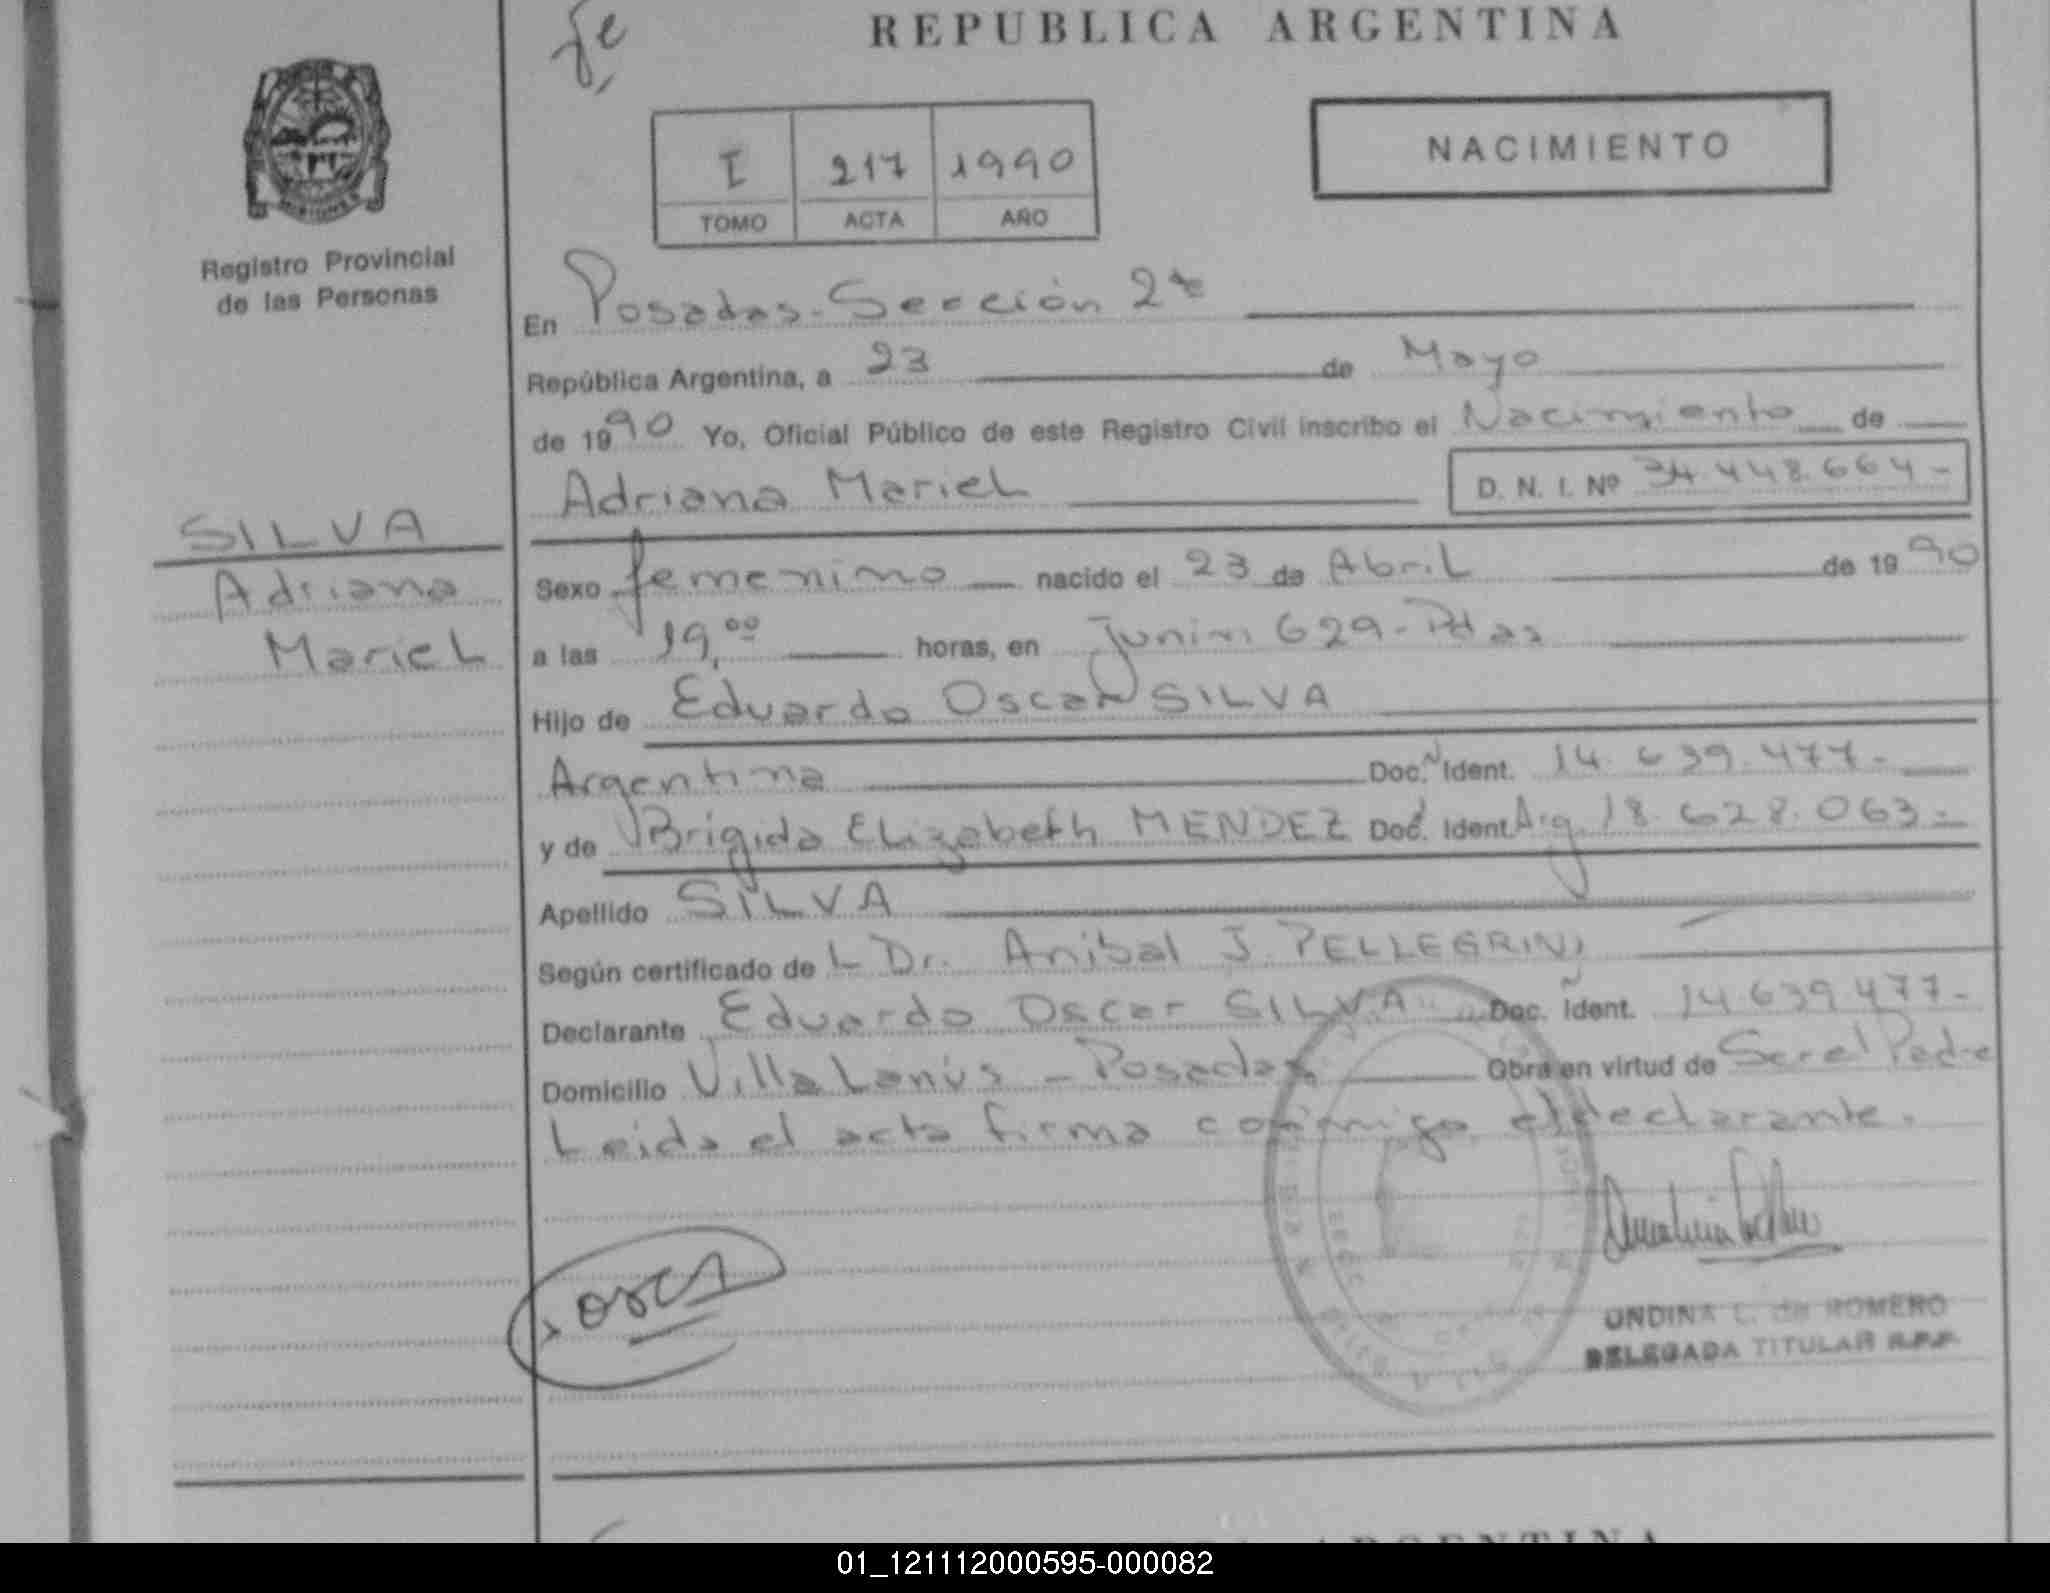 fe
REPUBLICA ARGENTINA
NACIMIENTO
I 217 1990
TOMO ACTA AÑO
Registro Provincial
de las Personas
En Posadas-Sección 2ª
República Argentina, a 23 de Mayo
de 1990 Yo, Oficial Público de este Registro Civil inscribo el Nacimiento de
Adriana Mariel D. N. I. Nº 34.448.664-
SILVA
Adriana
Mariel
Sexo femenino nacido el 23 de Abril de 1990
a las 19,00 horas, en Junín 629-Pdas
Hijo de Eduardo Oscar SILVA
Argentina Doc. Ident. 14.639.477-
y de Brigida Elizabeth MENDEZ Doc. Ident Arg. 18.628.063-
Apellido SILVA
Según certificado del Dr. Anibal J. PELLEGRINI
Declarante Eduardo Oscar SILVA Doc. Ident. 14.639.477-
Domicilio Villa Lanús - Posadas Obra en virtud de Ser el Padre
Leida el acta firma conmigo el declarante.
ONDINA L. de ROMERO
DELEGADA TITULAR R.P.P.
ARGENTINA
01_121112000595-000082